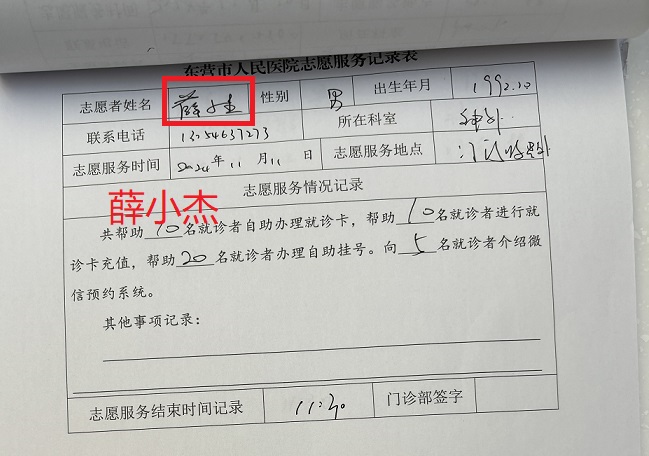 东营市人民医院志愿服务记录表
志愿者姓名 薛小杰 性别 男 出生年月 1992.10
联系电话 13254637273 所在科室 神外
志愿服务时间 2024年11月11日 志愿服务地点 门诊
志愿服务情况记录
薛小杰
共帮助10名就诊者自助办理就诊卡，帮助10名就诊者进行就
诊卡充值，帮助20名就诊者办理自助挂号。向5名就诊者介绍微
信预约系统。
其他事项记录：
志愿服务结束时间记录 11:30 门诊部签字